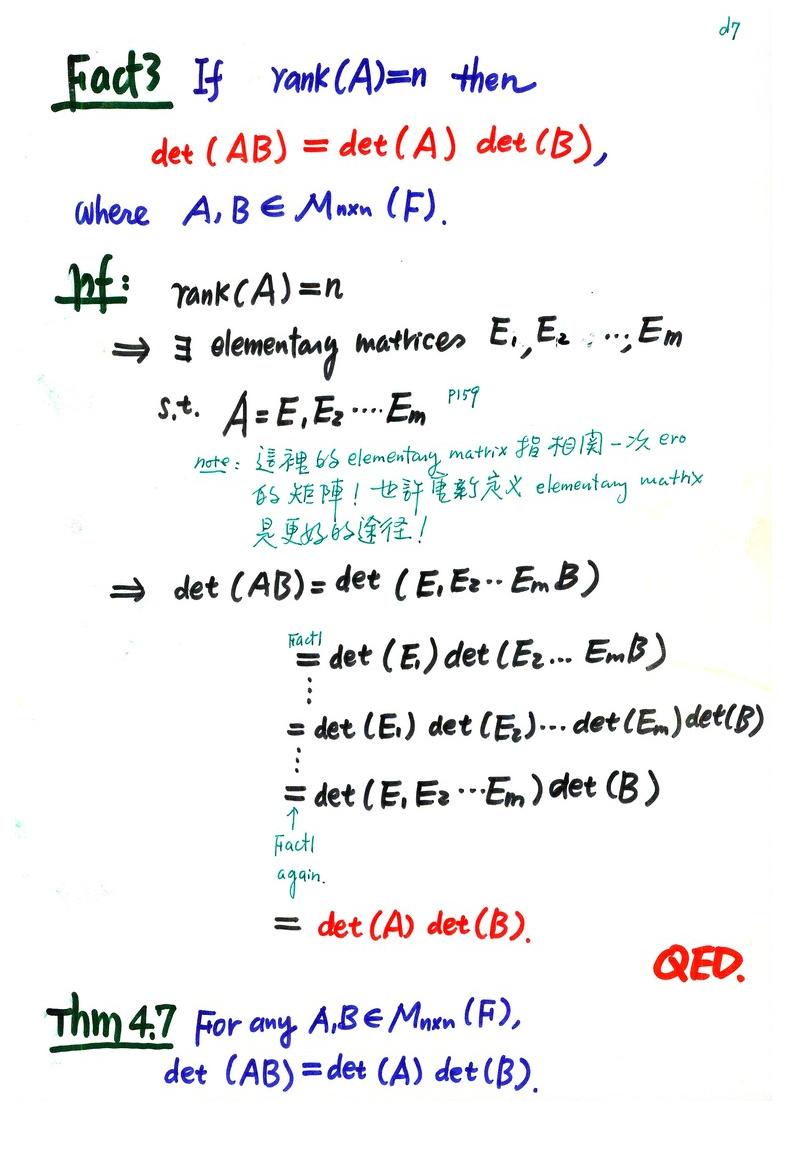 d7
Fact3 If rank(A)=n then
det(AB) = det(A) det(B),
where A, B ∈ Mnxn (F).
pf: rank(A)=n
⇒ ∃ elementary matrices E₁, E₂, ..., Em
s.t. A = E₁E₂....Em P159
note: 這裡的 elementary matrix 指相関一次 ero
的矩陣！也許重新定义 elementary matrix
是更好的途径！
⇒ det(AB) = det (E₁E₂.. EmB)
Fact1
= det (E₁) det (E₂... EmB)
⋮
= det (E₁) det (E₂)... det(Em) det(B)
⋮
= det (E₁E₂...Em) det (B)
↑
Fact1
again.
= det(A) det(B).
QED.
Thm 4.7 For any A,B ∈ Mnxn (F),
det (AB) = det (A) det(B).